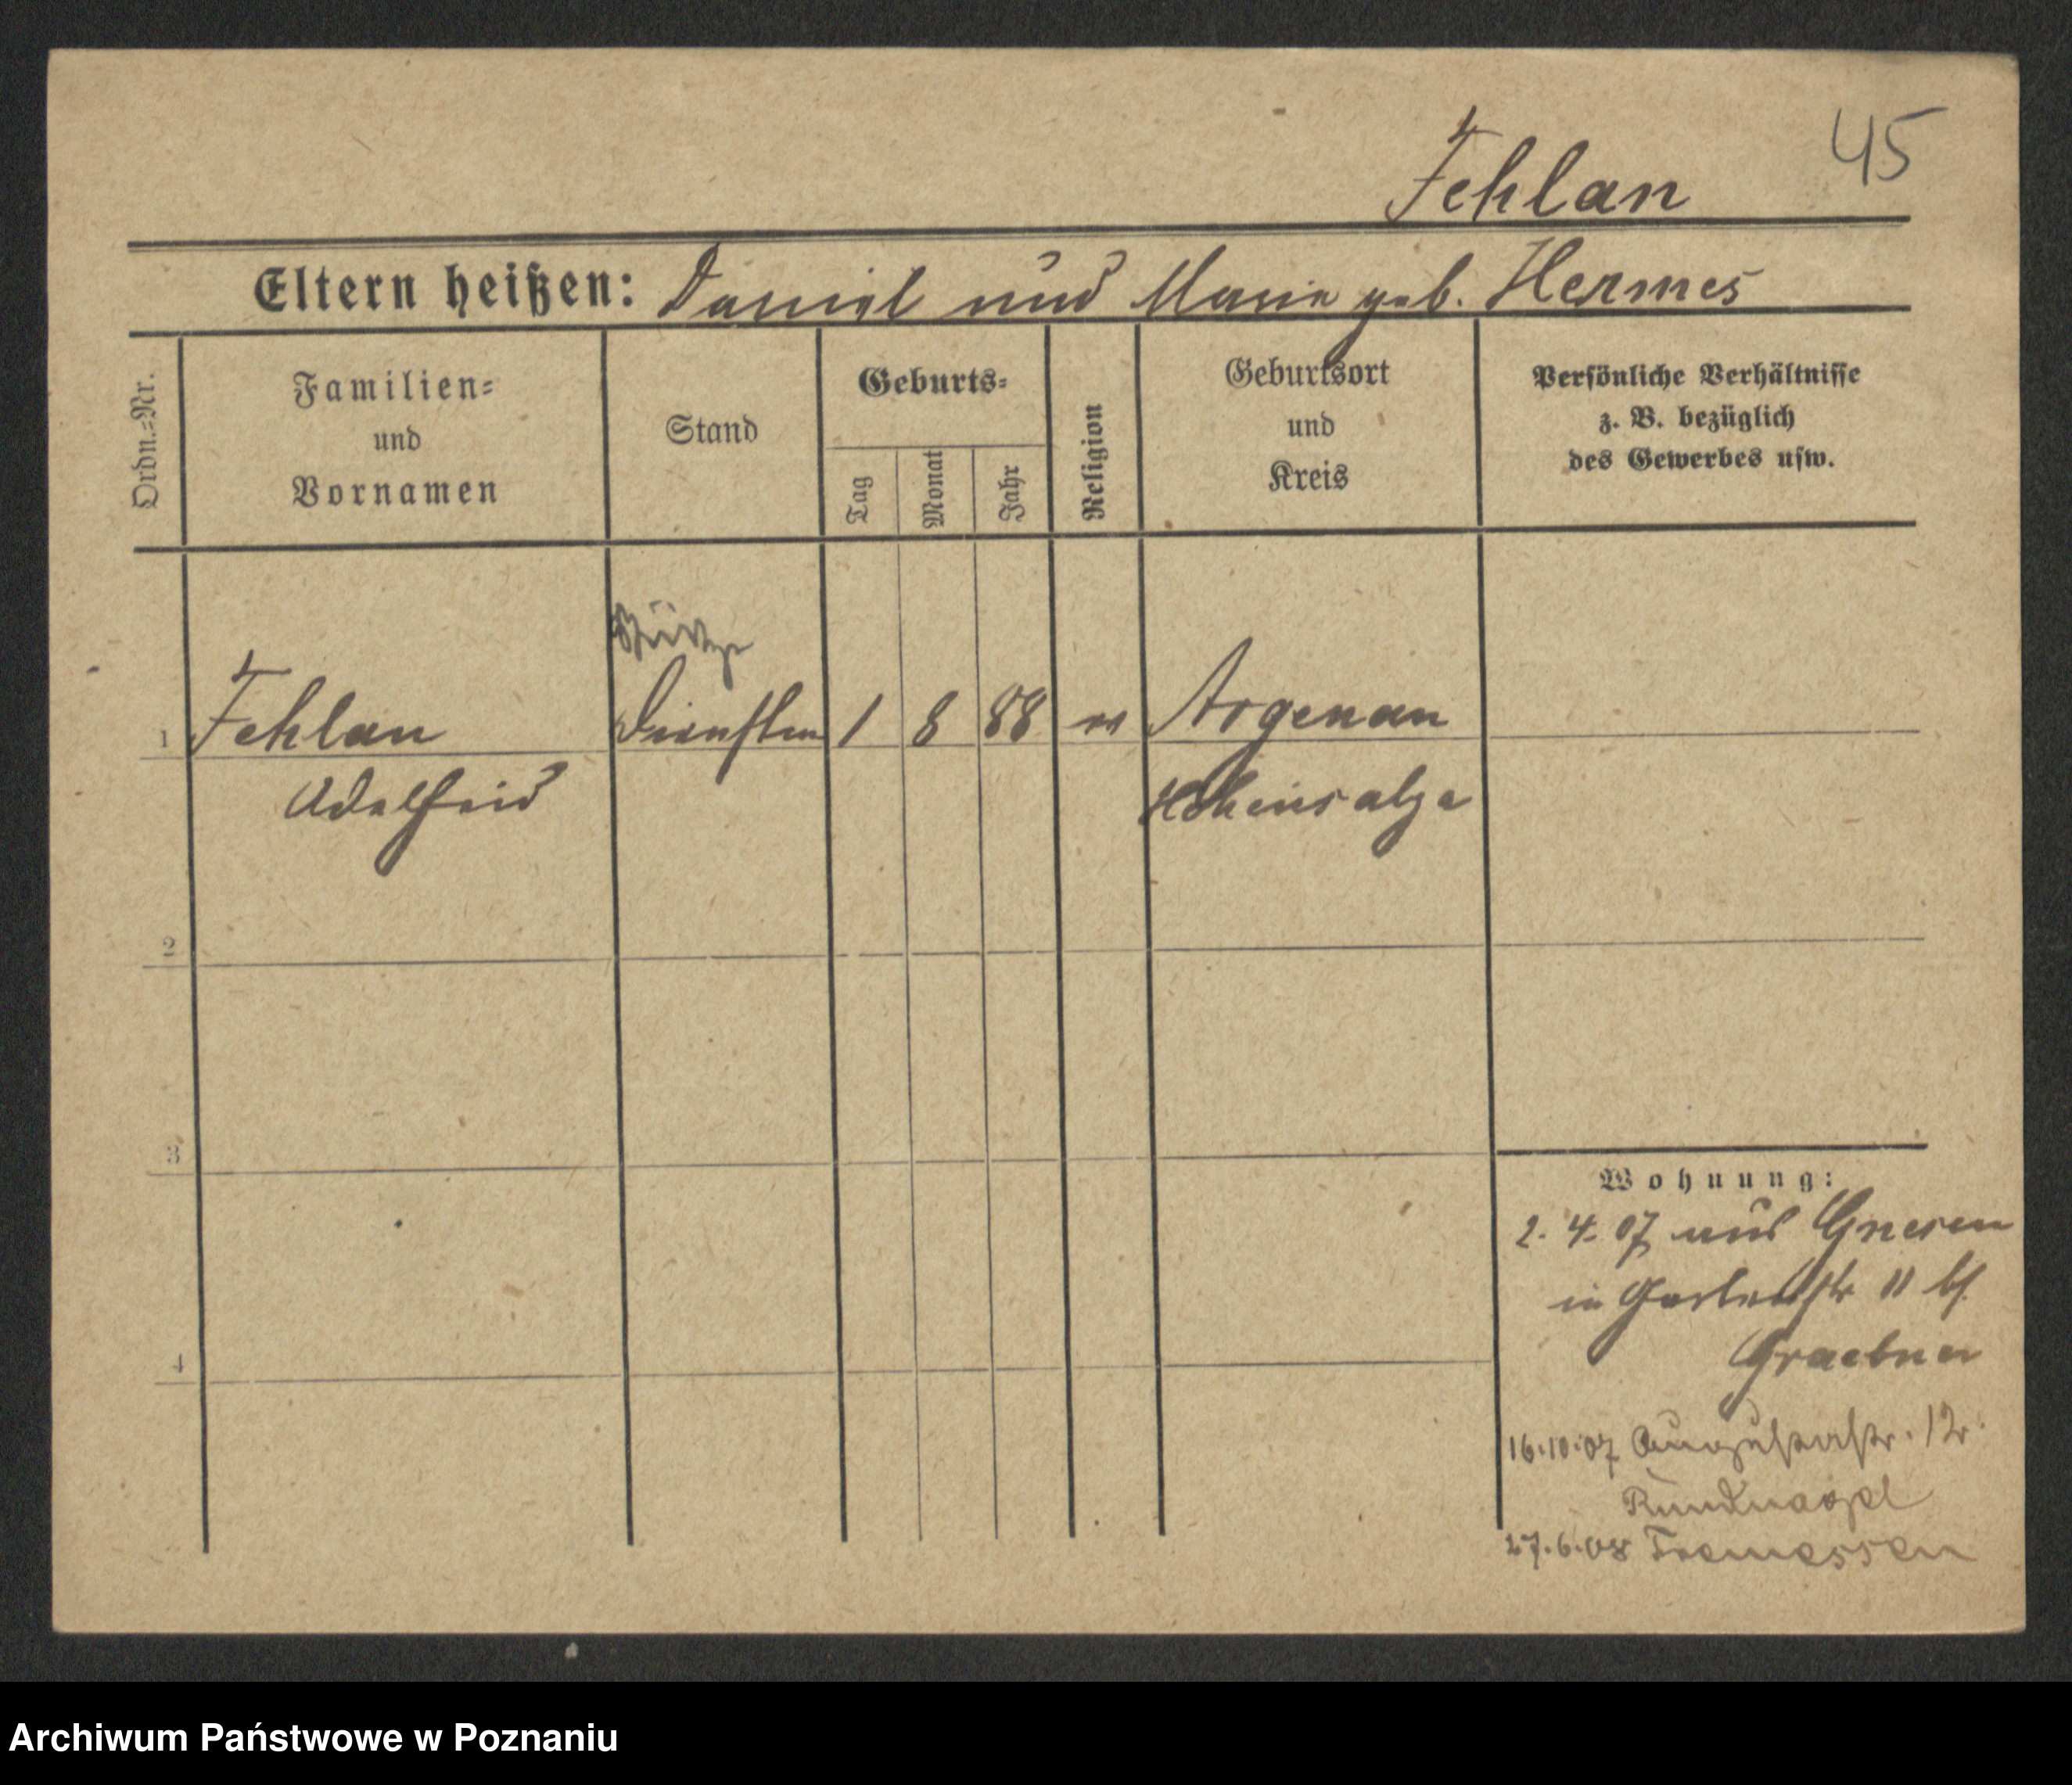 45
Fehlan
Eltern heißen: Daniel und Marie geb. Hermes
Ordn.=Nr.
Familien=
und
Vornamen
Stand
Geburts=
Tag
Monat
Jahr
Religion
Geburtsort
und
Kreis
Persönliche Verhältnisse
z. B. bezüglich
des Gewerbes usw.
Stütze
1 Fehlan 1 8 88 Argenau
Adelheid Hohensalza
2
3
4
Wohnung:
2. 4. 07 aus Gnesen
in Gartenstr 11 bf.
Graebner
16.10.07 Augustastr. 12
Rundnagel
27.6.08 Tremessen
Archiwum Państwowe w Poznaniu